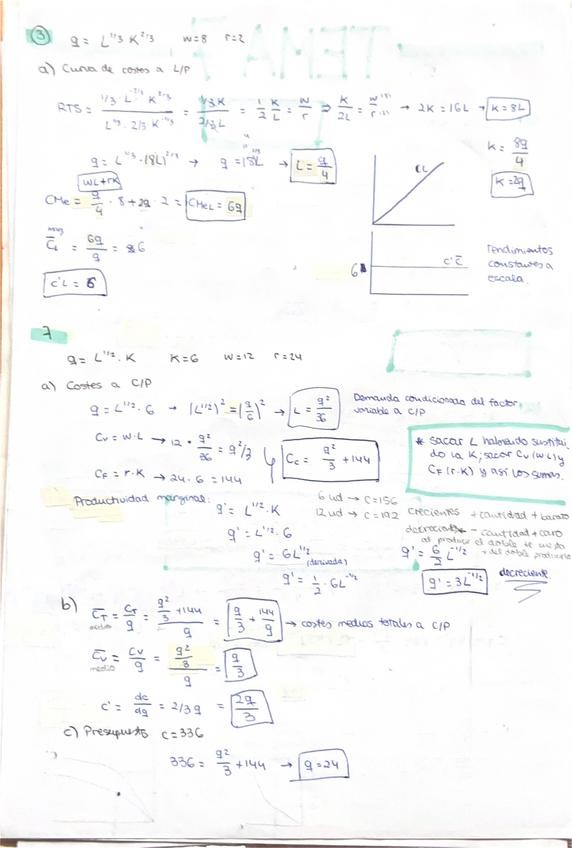 ③ q = L^1/3 K^2/3 w=8 r=2
a) Curva de costes a L/P
RTS = (1/3 · L^-2/3 · K^2/3)/(L^1/3 · 2/3 K^-1/3) = (1/3 K)/(2/3 L) = 1/2 K/L = w/r ⇒ K/2L = w/r → 2K = 16L → K = 8L
q = L^1/3 · (8L)^2/3 → L = q/4
K = 8q/4
K = 2q
WL + rK
CMe = q/4 · 8 + 2q · 2 = CMe L = 6q
CL
C̄L = 6q/q = 6
C'L = 6
6
C' C̄
rendimientos
constantes a
escala.
7
q = L^1/2 · K K=6 w=12 r=24
a) Costes a C/P
q = L^1/2 · 6 → (L^1/2)^2 = (q/6)^2 → L = q²/36
Demanda condicionada del factor
variable a C/P
Cv = w·L → 12 · q²/36 = q²/3
CF = r·K → 24·6 = 144
Cc = q²/3 + 144
* sacar L habiendo sustitui
do la K; sacar Cv (w·L) y
CF (r·K) y así los sumas.
Productividad marginal:
q' = L^1/2 · K
q' = L^1/2 · 6
q' = 6L^1/2
(derivada)
q' = 1/2 · 6L^-1/2
6 ud → C=156
12 ud → C=192
crecientes + cantidad + barato
decreciente - cantidad + caro
al producir el doble te cuesta
+ del doble producirlo
q' = 6/2 L^-1/2
q' = 3L^-1/2
decreciente
b) C̄T = CT/q = (q²/3 + 144)/q = q/3 + 144/q → costes medios totales a C/P
medios
C̄v = Cv/q = (q²/3)/q = q/3
medio
c' = dc/dq = 2/3 q = 2q/3
c) Presupuesto C=336
336 = q²/3 + 144 → q = 24